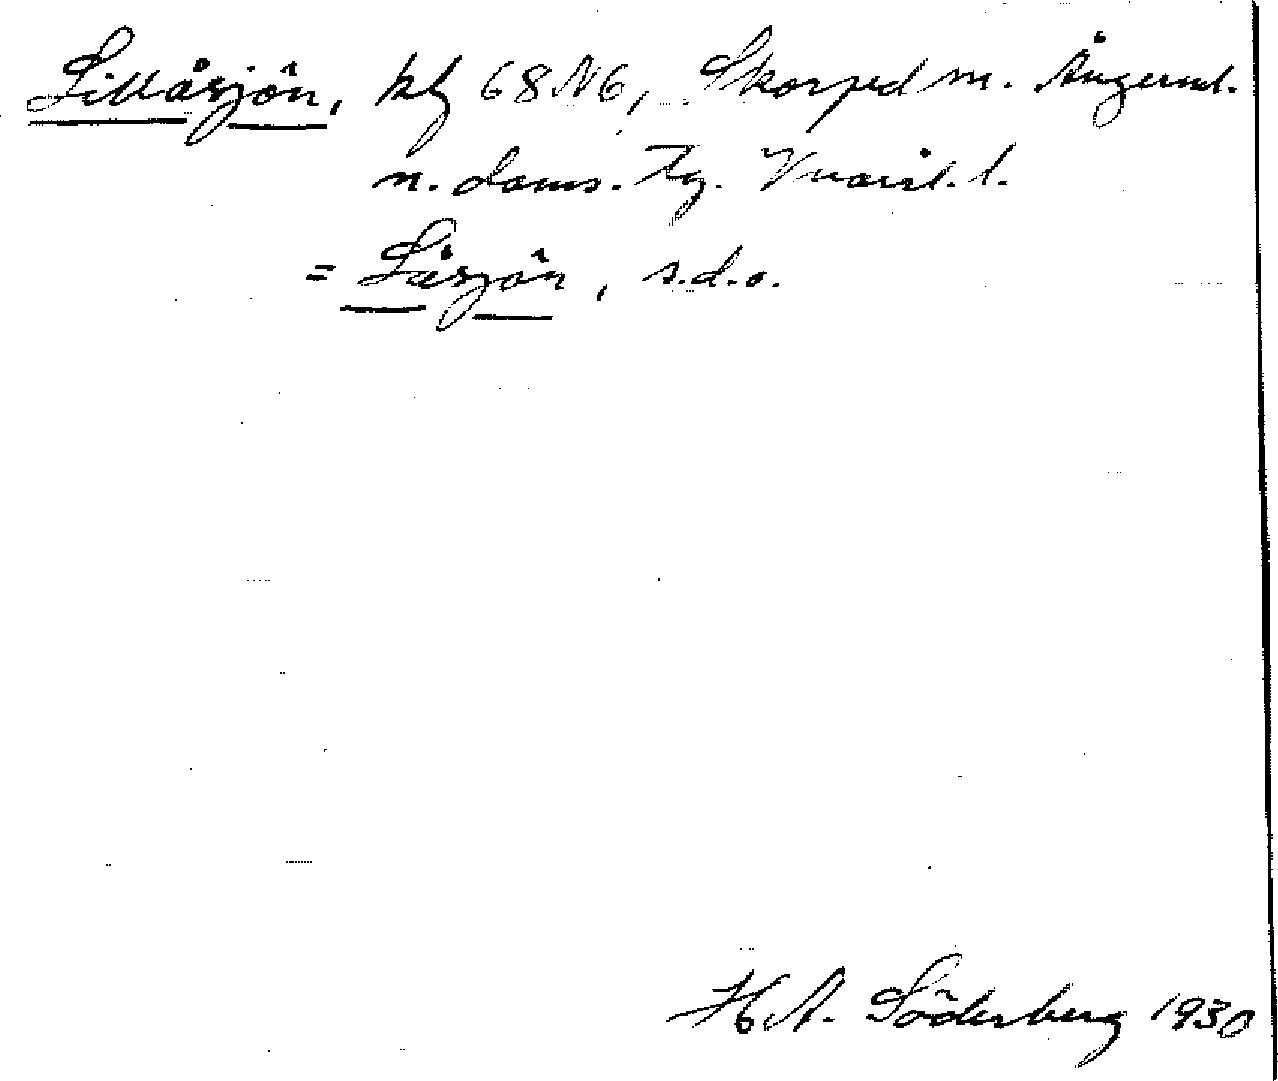 Lillåsjön, kbl 68 N6, Skorped sn. Ångerml.
n. doms. Ag.
= Låsjön, s.d.o.
H A. Söderberg 1930